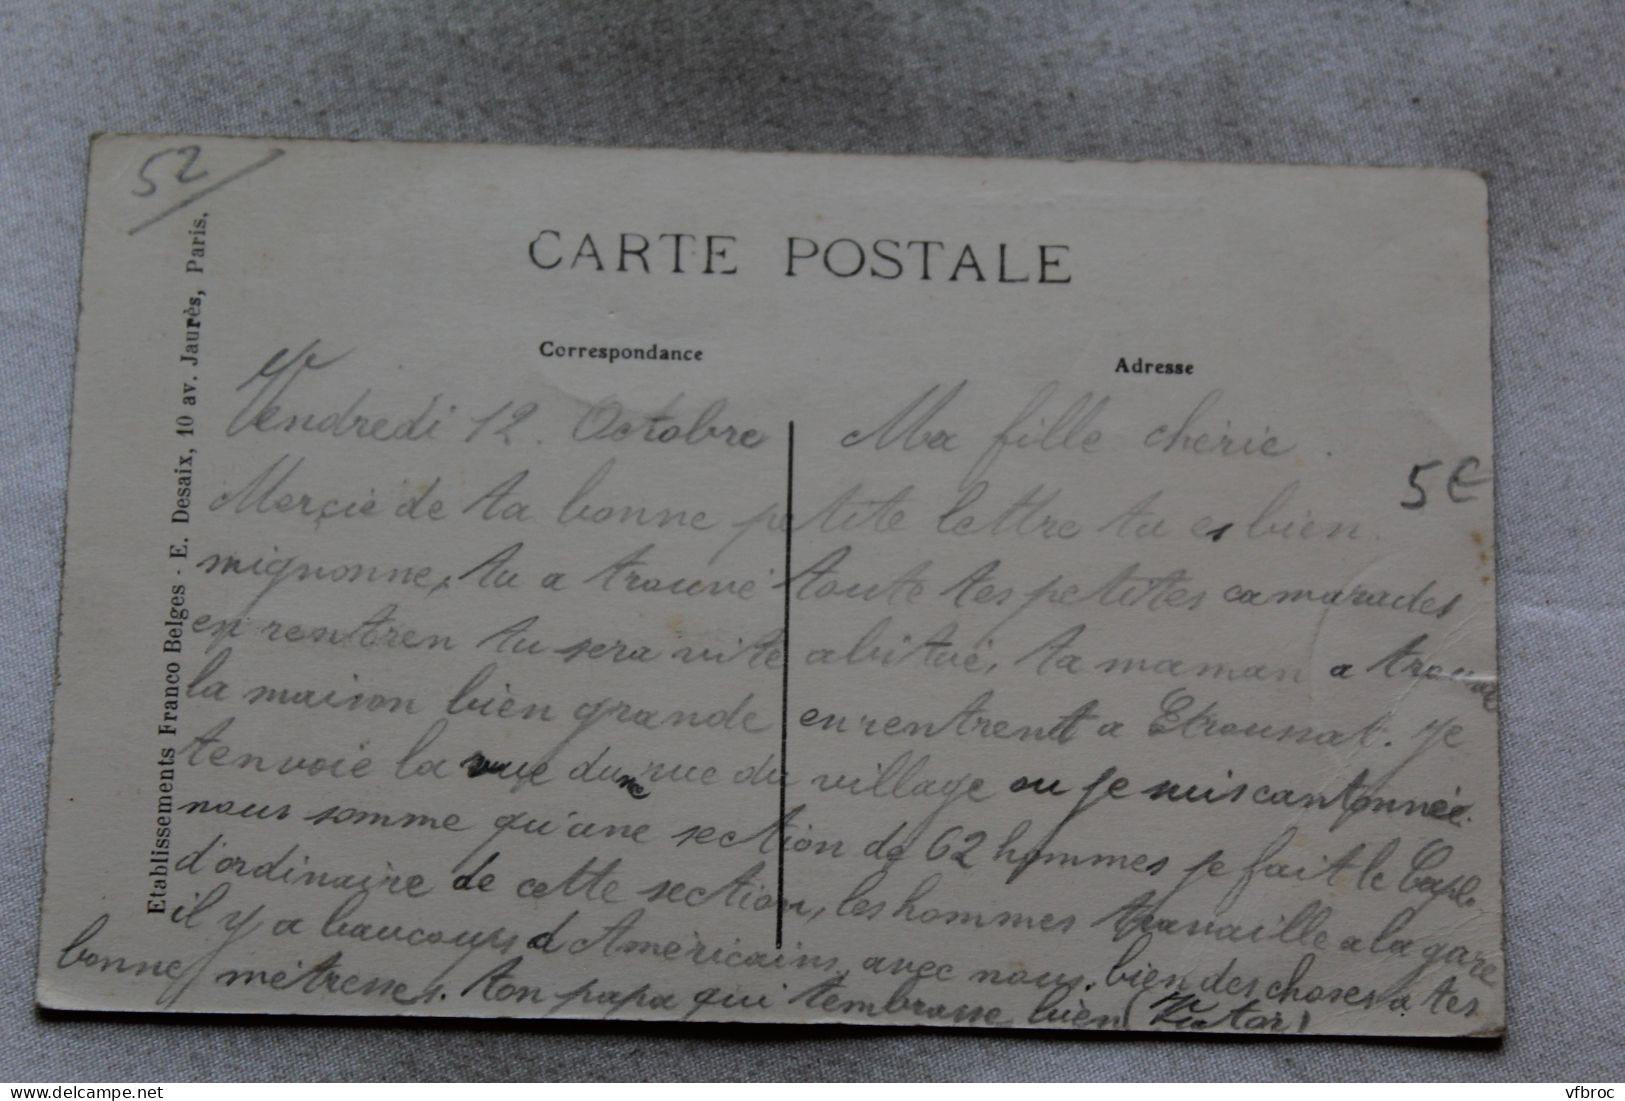 52
CARTE POSTALE
Correspondance
Adresse
Etablissements Franco Belges - E. Desaix, 10 av. Jaurès, Paris.
Vendredi 12. Octobre Ma fille chérie.
5€
Merçie de ta bonne petite lettre tu es bien
mignonne, tu a trouvé toute tes petites camarades
en rentren tu sera vite abitué, ta maman a trouvé
la maison bien grande en rentrent a Etroussat. Je
tenvoie la vue dune rue du village ou je suis cantonnée.
nous somme qu'une section de 62 hommes je fait le Capl.
d'ordinaire de cette section, les hommes travaille a la gare
il y a baucoups d Américains avec nous. bien des choses a tes
bonne métresses. ton papa qui tembrasse bien (Victor)
vfbroc